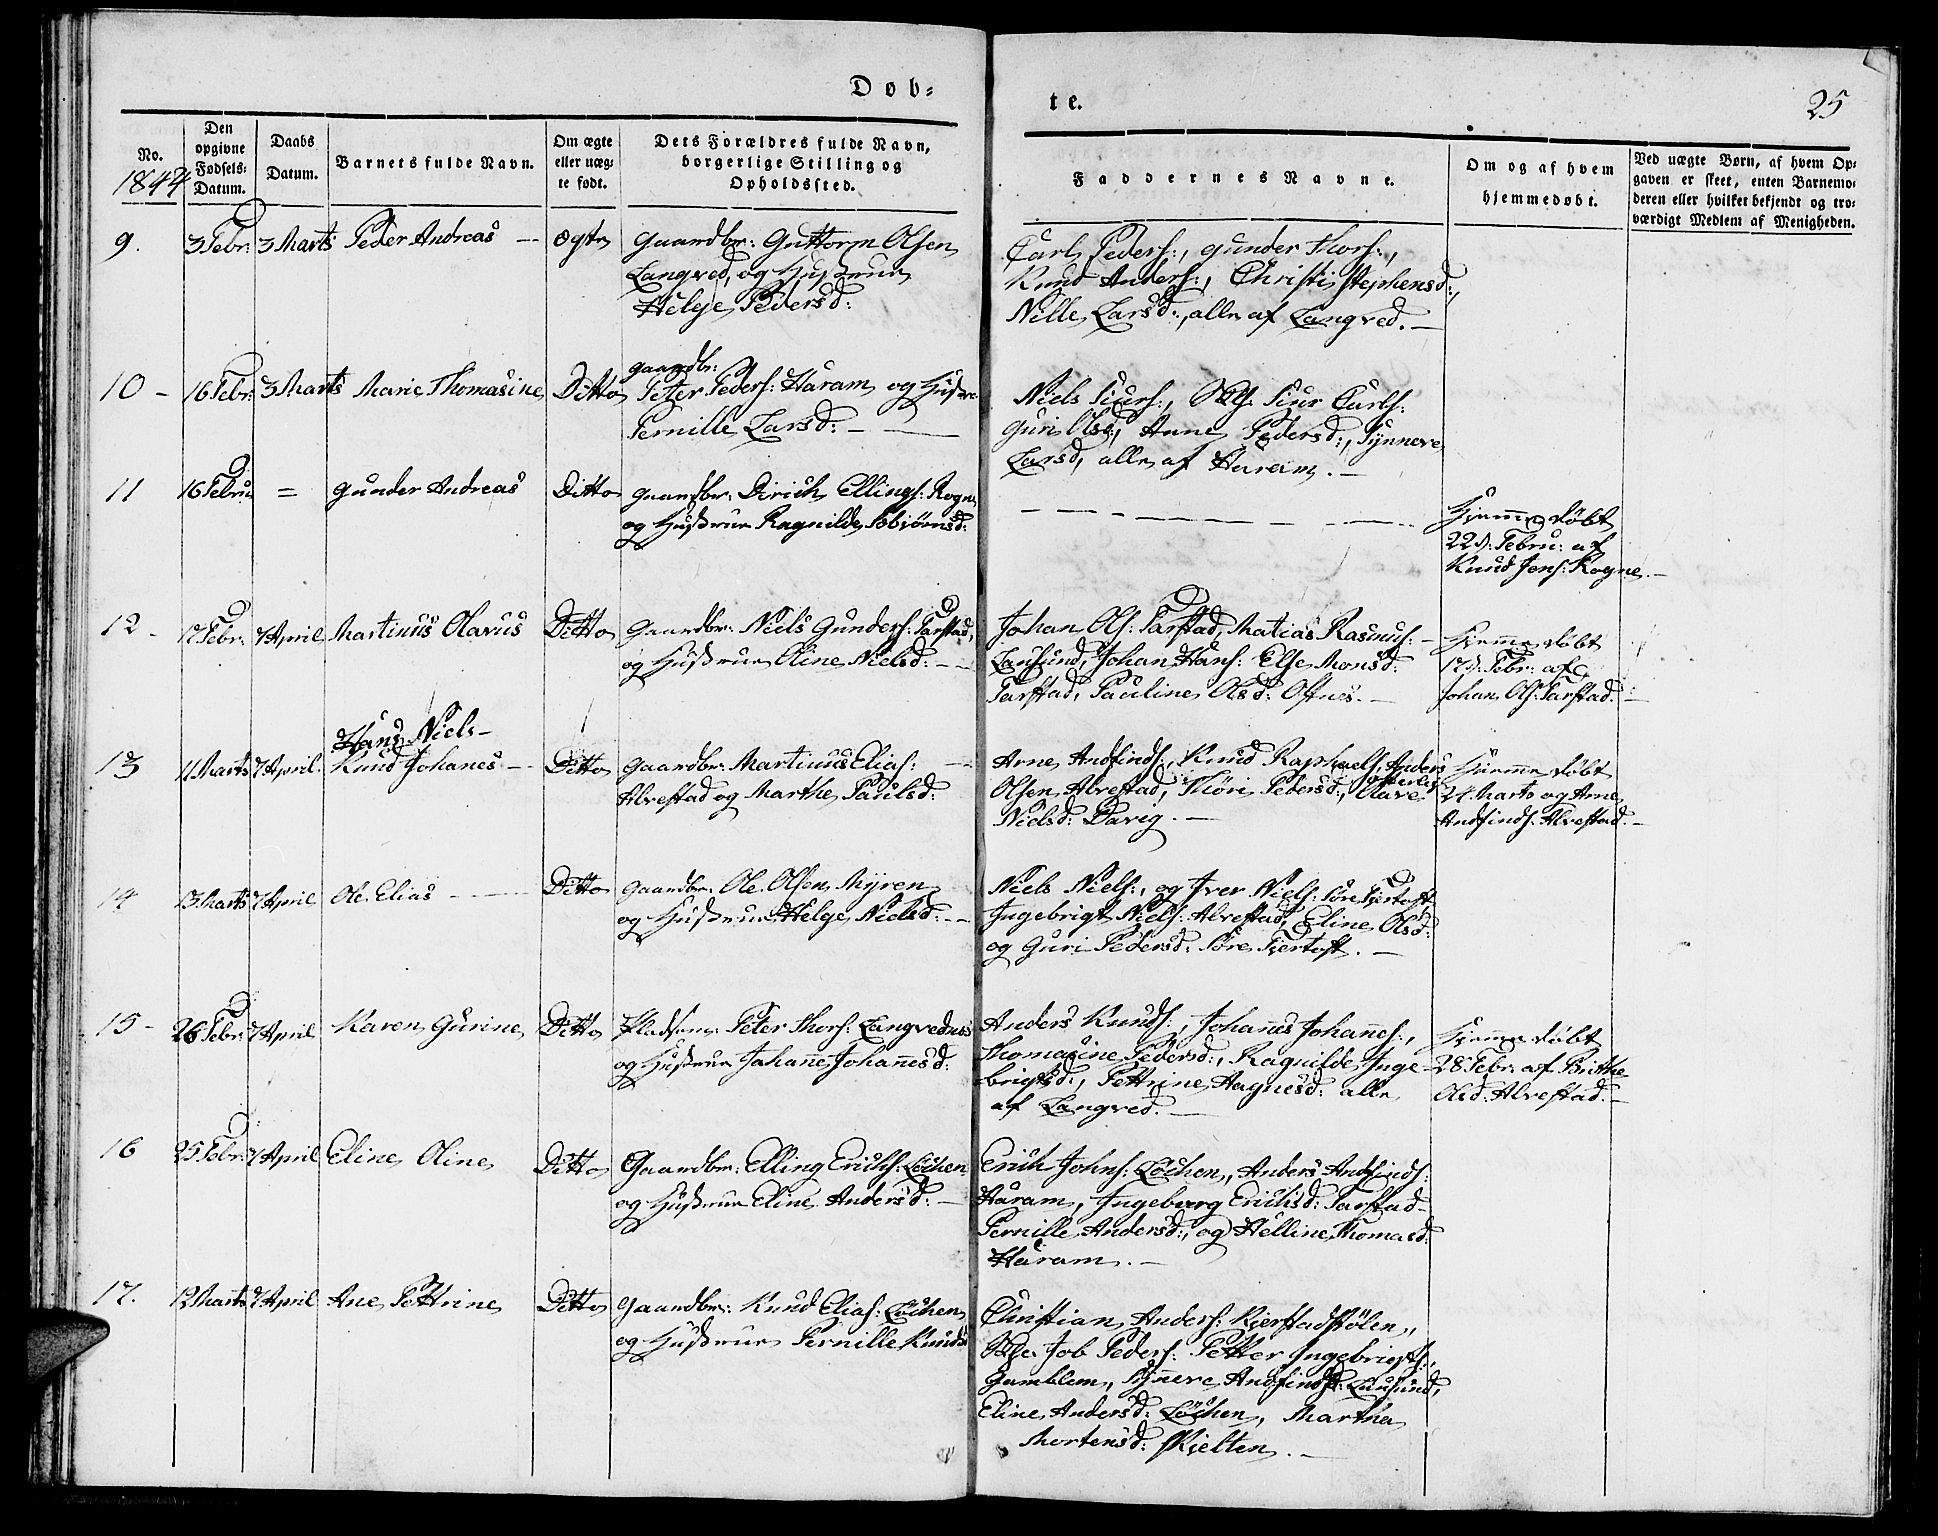 Døb=
te.
25
No.
1844
Den
opgivne
Fødsels=
Datum.
Daabs
Datum.
Barnets fulde Navn.
Om ægte
eller uæg=
te født.
Dets Forældres fulde Navn,
borgerlige Stilling og
Opholdssted.
Faddernes Navne.
Om og af hvem
hjemmedøbt.
Ved uægte Børn, af hvem Op=
gaven er skeet, enten Barnemo=
deren eller hvilket bekjendt og tro=
værdigt Medlem af Menigheden.
9. 3 Febr: 3 Marts Peder Andreas — Ægte Gaardbr: Guttorm Olsen
Langved, og Hustrue
Helge Pedersd:
Carl Peders:, Gunder Thors:,
Knud Anders:, Christi Stephensd:,
Nille Larsd:, alle af Langved. —
10 - 16 Febr: 3 Marts Marie Thomasine Ditto Gaardbr:
Peter Peders: Haram og Hustrue
Pernille Larsd: —
Niels Siurs:, Siur Carls:
Guri Olsd, Anne Pedersd:, Synneve
Larsd, alle af Haram. —
11 16 Febru = Gunder Andreas Ditto Gaardbr: Dirich Ellings: Rogne
og Hustrue Ragnilde Tobiörnsd:
Hjemmedøbt
22d: Febru: af
Knud Jens: Rogne. —
12 - 17 Febr: 7 April Martinus Olavus Ditto Gaardbr: Niels Gunders: Farstad,
og Hustrue Oline Nielsd: —
Johan Ols: Farstad, Matias Rasmus: —
Lausund, Johan Hans: Else Monsd:
Farstad, Pauline Olsd: Ofnes. —
Hjemmedøbt
17d: Febr: af
Johan Ols: Farstad. —
13 11 Marts 7 April. Hans Niels-
Knud Johanes — Ditto Gaardbr: Martinus Elias: —
Alvestad og Marthe Paulsd:
Arne Andfinds:, Knud Raphaels, Anders
Olsen Alvestad, Thöri Pedersd:, Olave
Nielsd: Davig. —
Hjemmedøbt
24. Marts og Arne
Andfinds. Alvestad. —
14 13 Marts 7 April Ole Elias — Ditto Gaardbr: Ole Olsen Myren
og Hustrue Helge Nielsd: —
Niels Niels:, og Iver Niels: Søre Fjertoft,
Ingebrigt Niels: Alvestad, Eline Olsd:
og Guri Pedersd: Søre Fjertoft. —
15 - 26 Febr: 7 April Karen Gurine Ditto Pladsm: Peter Thors: Langvednes
og Hustrue Johanne Johanesd:
Anders Knuds:, Johanes Johannes:,
Thomasine Pedersd:, Ragnilde Inge-
brigtsd:, Pettrine Aagnesd: alle
af Langved. —
Hjemmedøbt
28 Febr: af Britthe
Olsd: Alvestad. —
16 25 Febr: 7 April Eline Oline Ditto Gaardbr: Elling Erichs: Löchen
og Hustrue Eline Andersd: —
Erich Johns: Löchen, Anders Andfinds:
Haram, Ingeborg Erichsd: Farstad-
Pernille Andersd:, og Helline Thomasd:
Haram. —
17. 12 Marts 7 April Ane Pettrine Ditto Gaardbr: Knud Elias: Löchen
og Hustrue Pernille Knudsd
Christian Anders: Kierstadstölen,
Job Peders: Petter Ingebrigts:,
Gamblem, Synneve Andfindsd: Lausund,
Eline Andersd: Löchen, Martha
Mortensd: Skielten. —